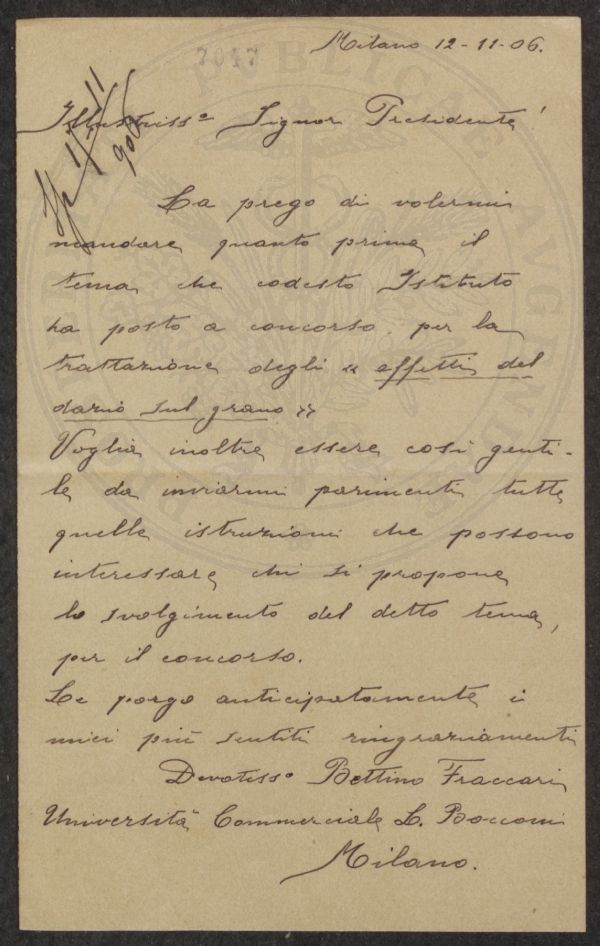 Milano 12-11-06.
7047
11/11
906
Illustriss.o Signor Presidente!
La prego di volermi
mandare quanto prima il
tema che codesto Istituto
ha posto a concorso per la
trattazione degli « effetti del
dazio sul grano »
Voglia inoltre essere così genti-
le da inviarmi parimenti tutte
quelle istruzioni che possono
interessare chi si propone
lo svolgimento del detto tema,
per il concorso.
Le porgo anticipatamente i
miei più sentiti ringraziamenti
Devotiss.o Bettino Fraccari
Università Commerciale L. Bocconi
Milano.